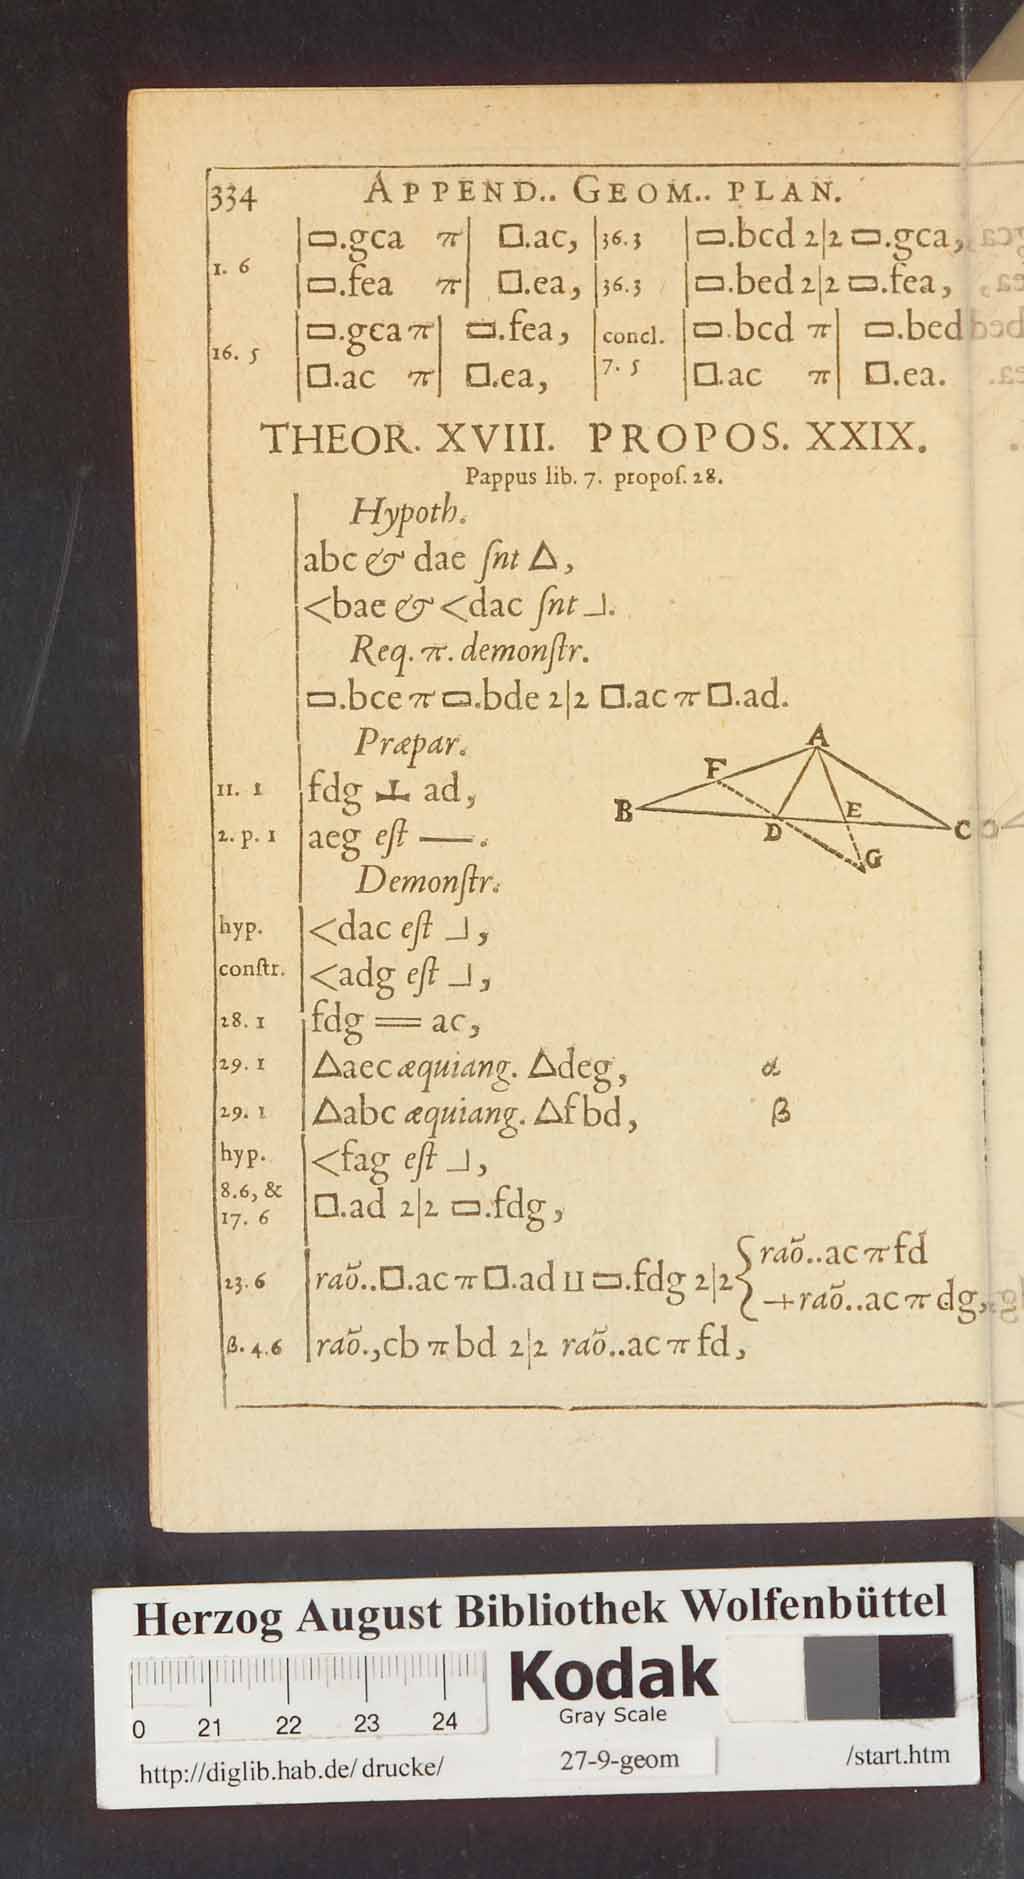 334 APPEND.. GEOM.. PLAN.
1. 6 | ▭.gca π | □.ac, | 36.3 | ▭.bcd 2|2 ▭.gca,
▭.fea π | □.ea, | 36.3 | ▭.bed 2|2 ▭.fea,
16. 5 | ▭.gca π | ▭.fea, | concl. | ▭.bcd π | ▭.bed
□.ac π | □.ea, | 7. 5 | □.ac π | □.ea.
THEOR. XVIII. PROPOS. XXIX.
Pappus lib. 7. propoſ. 28.
Hypoth.
abc & dae ſnt △,
<bae & <dac ſnt ┘.
Req. π. demonſtr.
▭.bce π ▭.bde 2|2 □.ac π □.ad.
Præpar.
11. 1 | fdg ⊥ ad,
2. p. 1 | aeg eſt —.
A
F
B
D
E
C
G
Demonſtr.
hyp. | <dac eſt ┘,
conſtr. | <adg eſt ┘,
28. 1 | fdg = ac,
29. 1 | △aec æquiang. △deg, α
29. 1 | △abc æquiang. △fbd, β
hyp. | <fag eſt ┘,
8.6, &
17. 6 | □.ad 2|2 ▭.fdg,
23.6 | raõ..□.ac π □.ad ⊔ ▭.fdg 2|2 { raõ..ac π fd
+raõ..ac π dg,
β. 4.6 | raõ.,cb π bd 2|2 raõ..ac π fd,
Herzog August Bibliothek Wolfenbüttel
Kodak
Gray Scale
0 21 22 23 24
http://diglib.hab.de/drucke/ 27-9-geom /start.htm